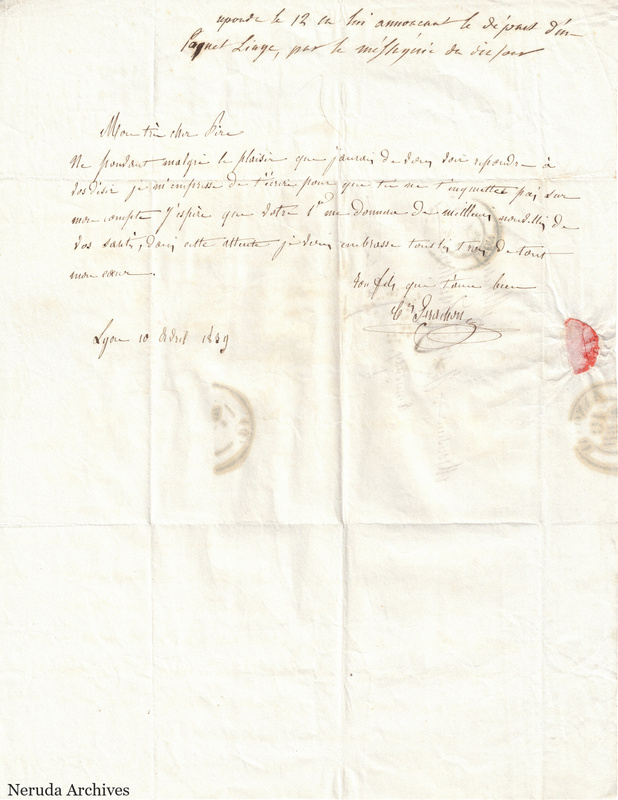 reponde le 12 en lui annoncant le départ d'un
Paquet Linge, par la méssagerie de ce jour
Mon trè cher Pére
Ne pouvant malgré le plaisir que j'aurai de vous voir repondre à
vos désir je m'empresse de t'écrire pour que tu ne t'inquiettes pas sur
mon compte J'éspére que votre 1re me donnera de meilleur nouvelles de
vos santé, dans cette attente je vous embrasse tous les trois de tout
mon cœur.
ton fils qui t'aime bien
Lyon 10 Avril 1839
Neruda Archives